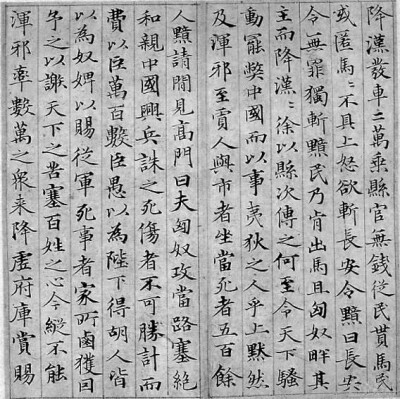 降漢發車二萬乘縣官無錢從民貰馬民
或匿馬〻不具上怒欲斬長安令黯曰長安
令無罪獨斬黯民乃肯出馬且匈奴畔其
主而降漢〻徐以縣次傳之何至令天下騷
動罷獘中國而以事夷狄之人乎上默然
及渾邪至賈人與市者坐當死者五百餘
人黯請閒見髙門曰夫匈奴攻當路塞絶
和親中國興兵誅之死傷者不可勝計而
費以巨萬百數臣愚以為陛下得胡人皆
以為奴婢以賜從軍死事者家所鹵獲因
予之以謝天下之苦塞百姓之心今縱不能
渾邪率數萬之衆来降虛府庫賞賜